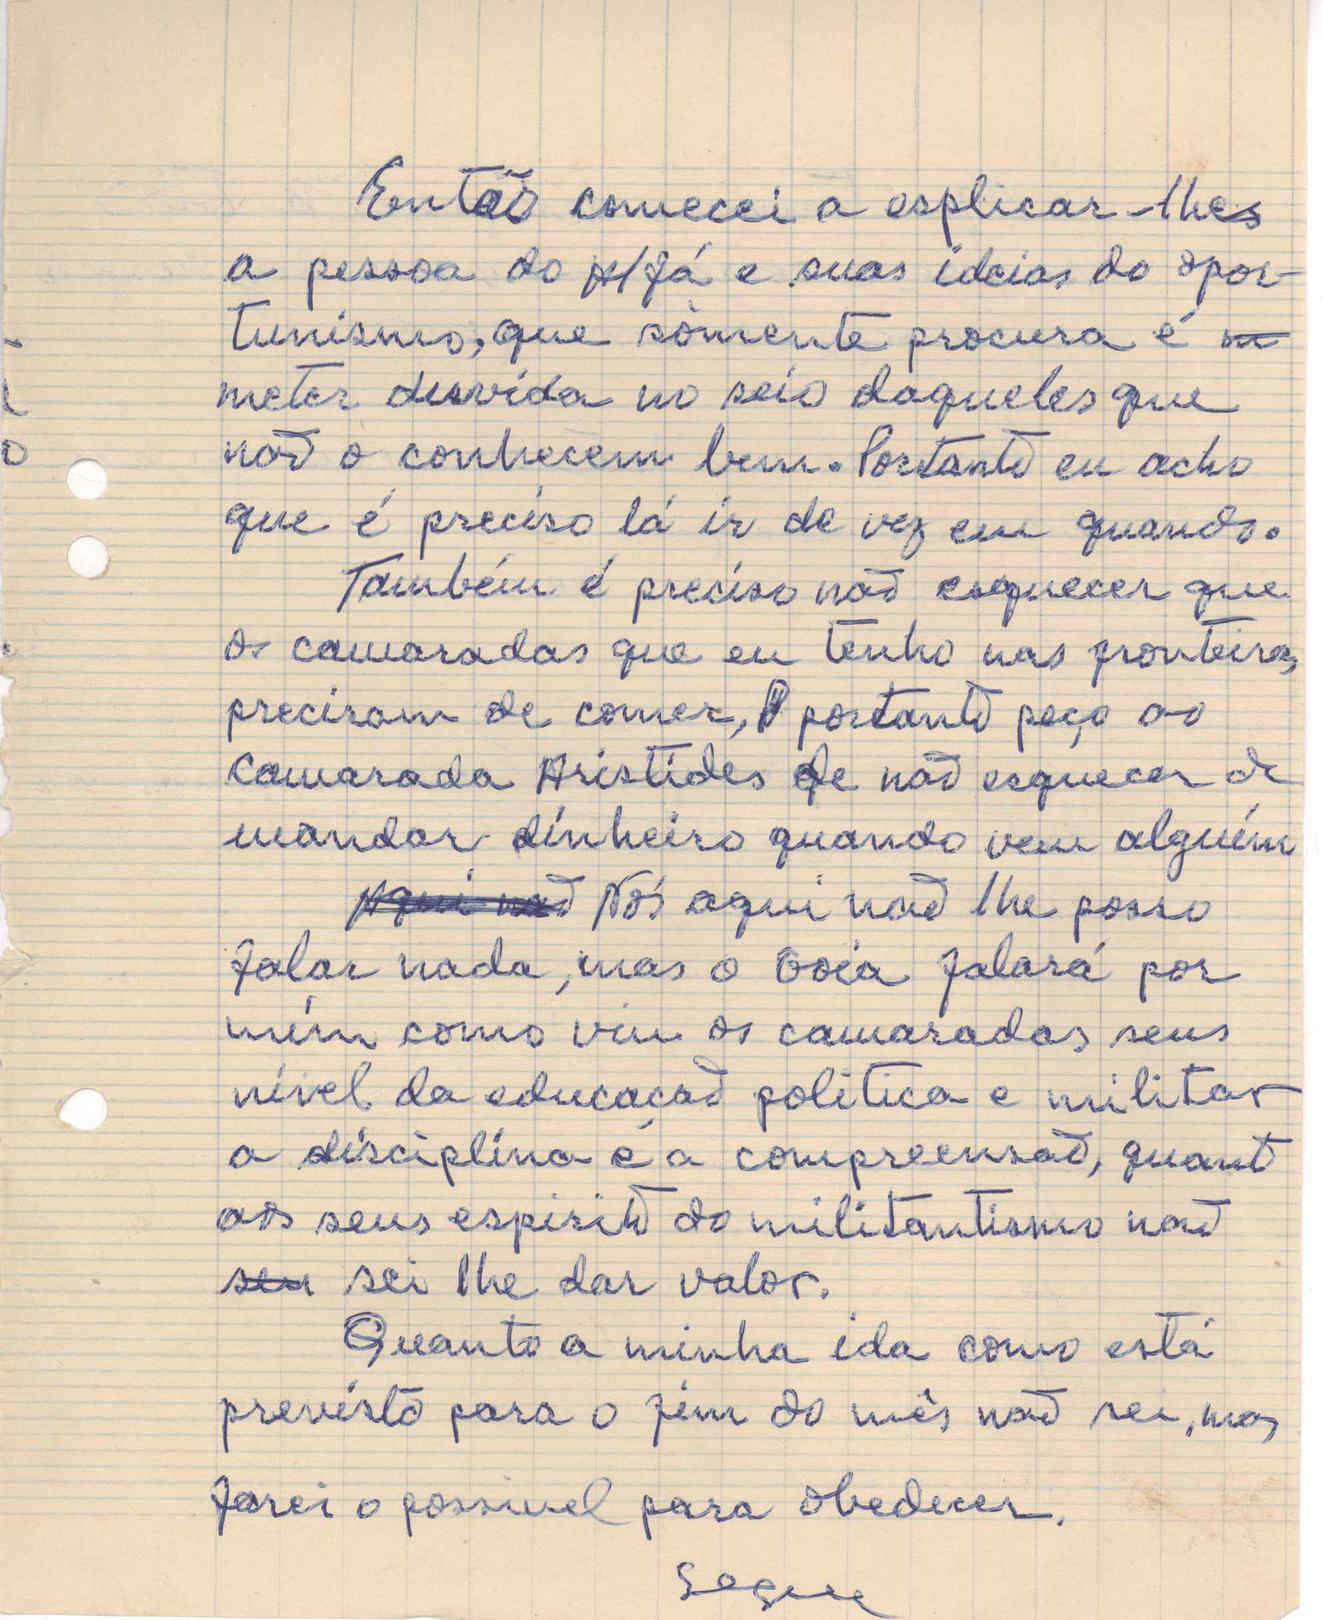 Então comecei a esplicar-lhes
a pessoa do A/Já e suas ideias do opor-
tunismo, que sòmente procura é m
meter duvída no seio daqueles que
não o conhecem bem. Portanto eu acho
que é preciso lá ir de vez em quando.
Também é preciso não esquecer que
os camaradas que eu tenho nas fronteiras,
precisam de comer, portanto peço ao
Camarada Aristides de não esquecer de
mandar dínheiro quando vem alguém
Aqui não Nós aqui não lhe posso
falar nada, mas o falará por
mím como viu os camaradas seus
nível da educação politica e militar
a disciplína é a compreensão, quanto
aos seus espirito do militantismo não
seu sei lhe dar valor.
Quanto a minha ida como está
prevísto para o fím do mês não sei, mas
farei o possivel para obedecer.
Segue